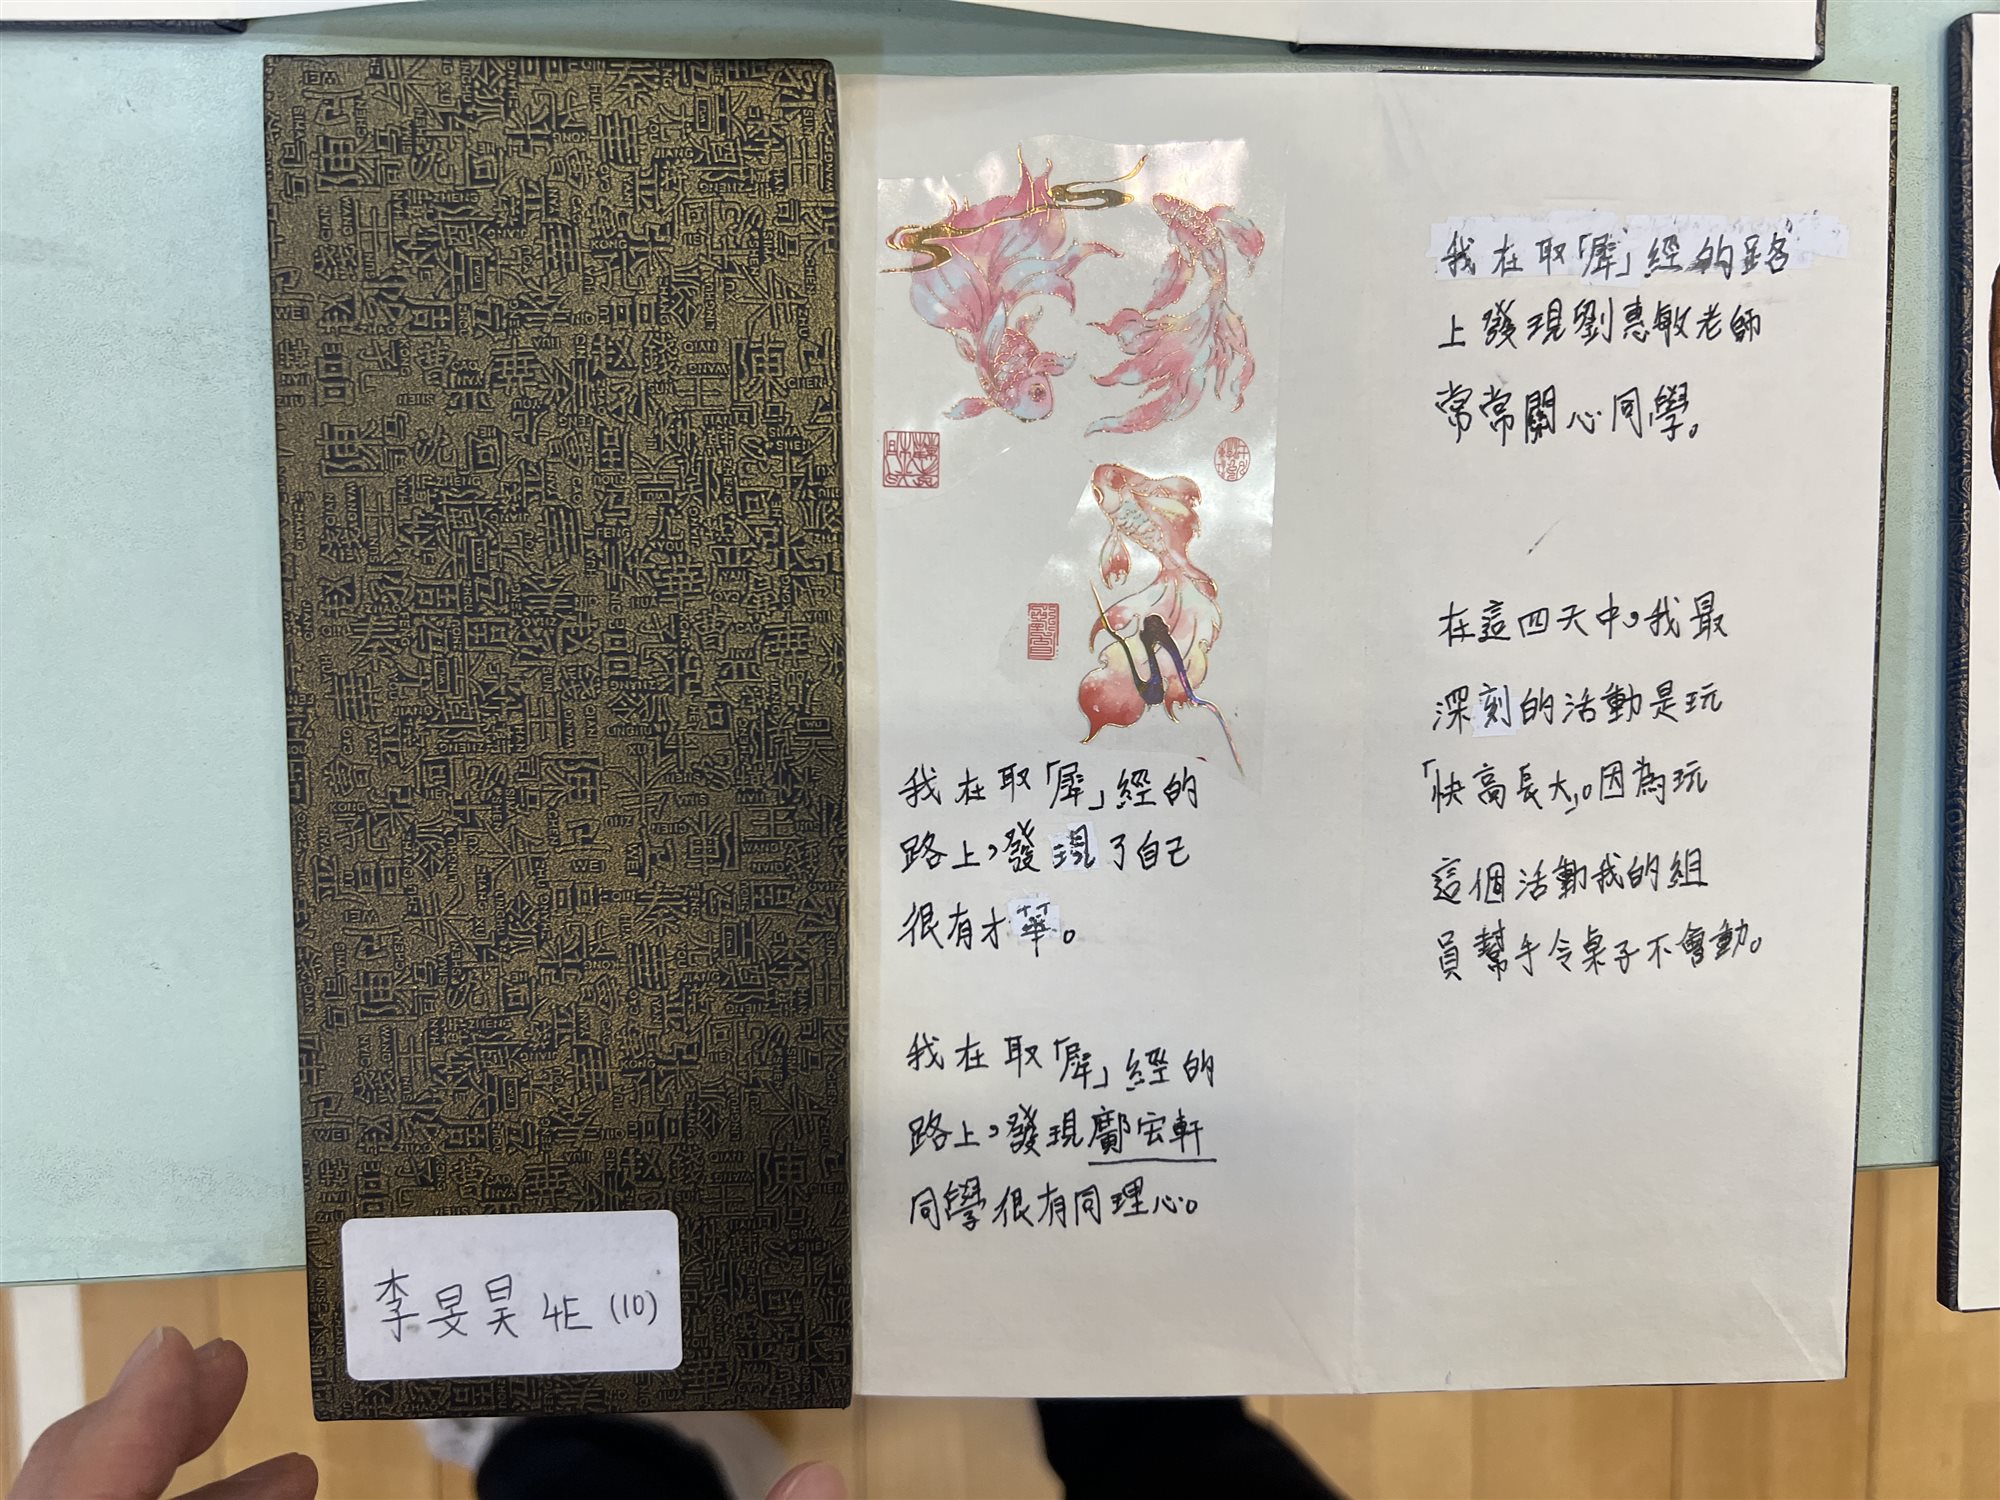 我在取「犀」經的
路上，發現了自己
很有才華。
我在取「犀」經的
路上，發現鄺宏軒
同學很有同理心。
我在取「犀」經的路
上發現劉惠敏老師
常常關心同學。
在這四天中，我最
深刻的活動是玩
「快高長大」。因為玩
這個活動我的組
員幫手令桌子不會動。
李旻昊 4E (10)